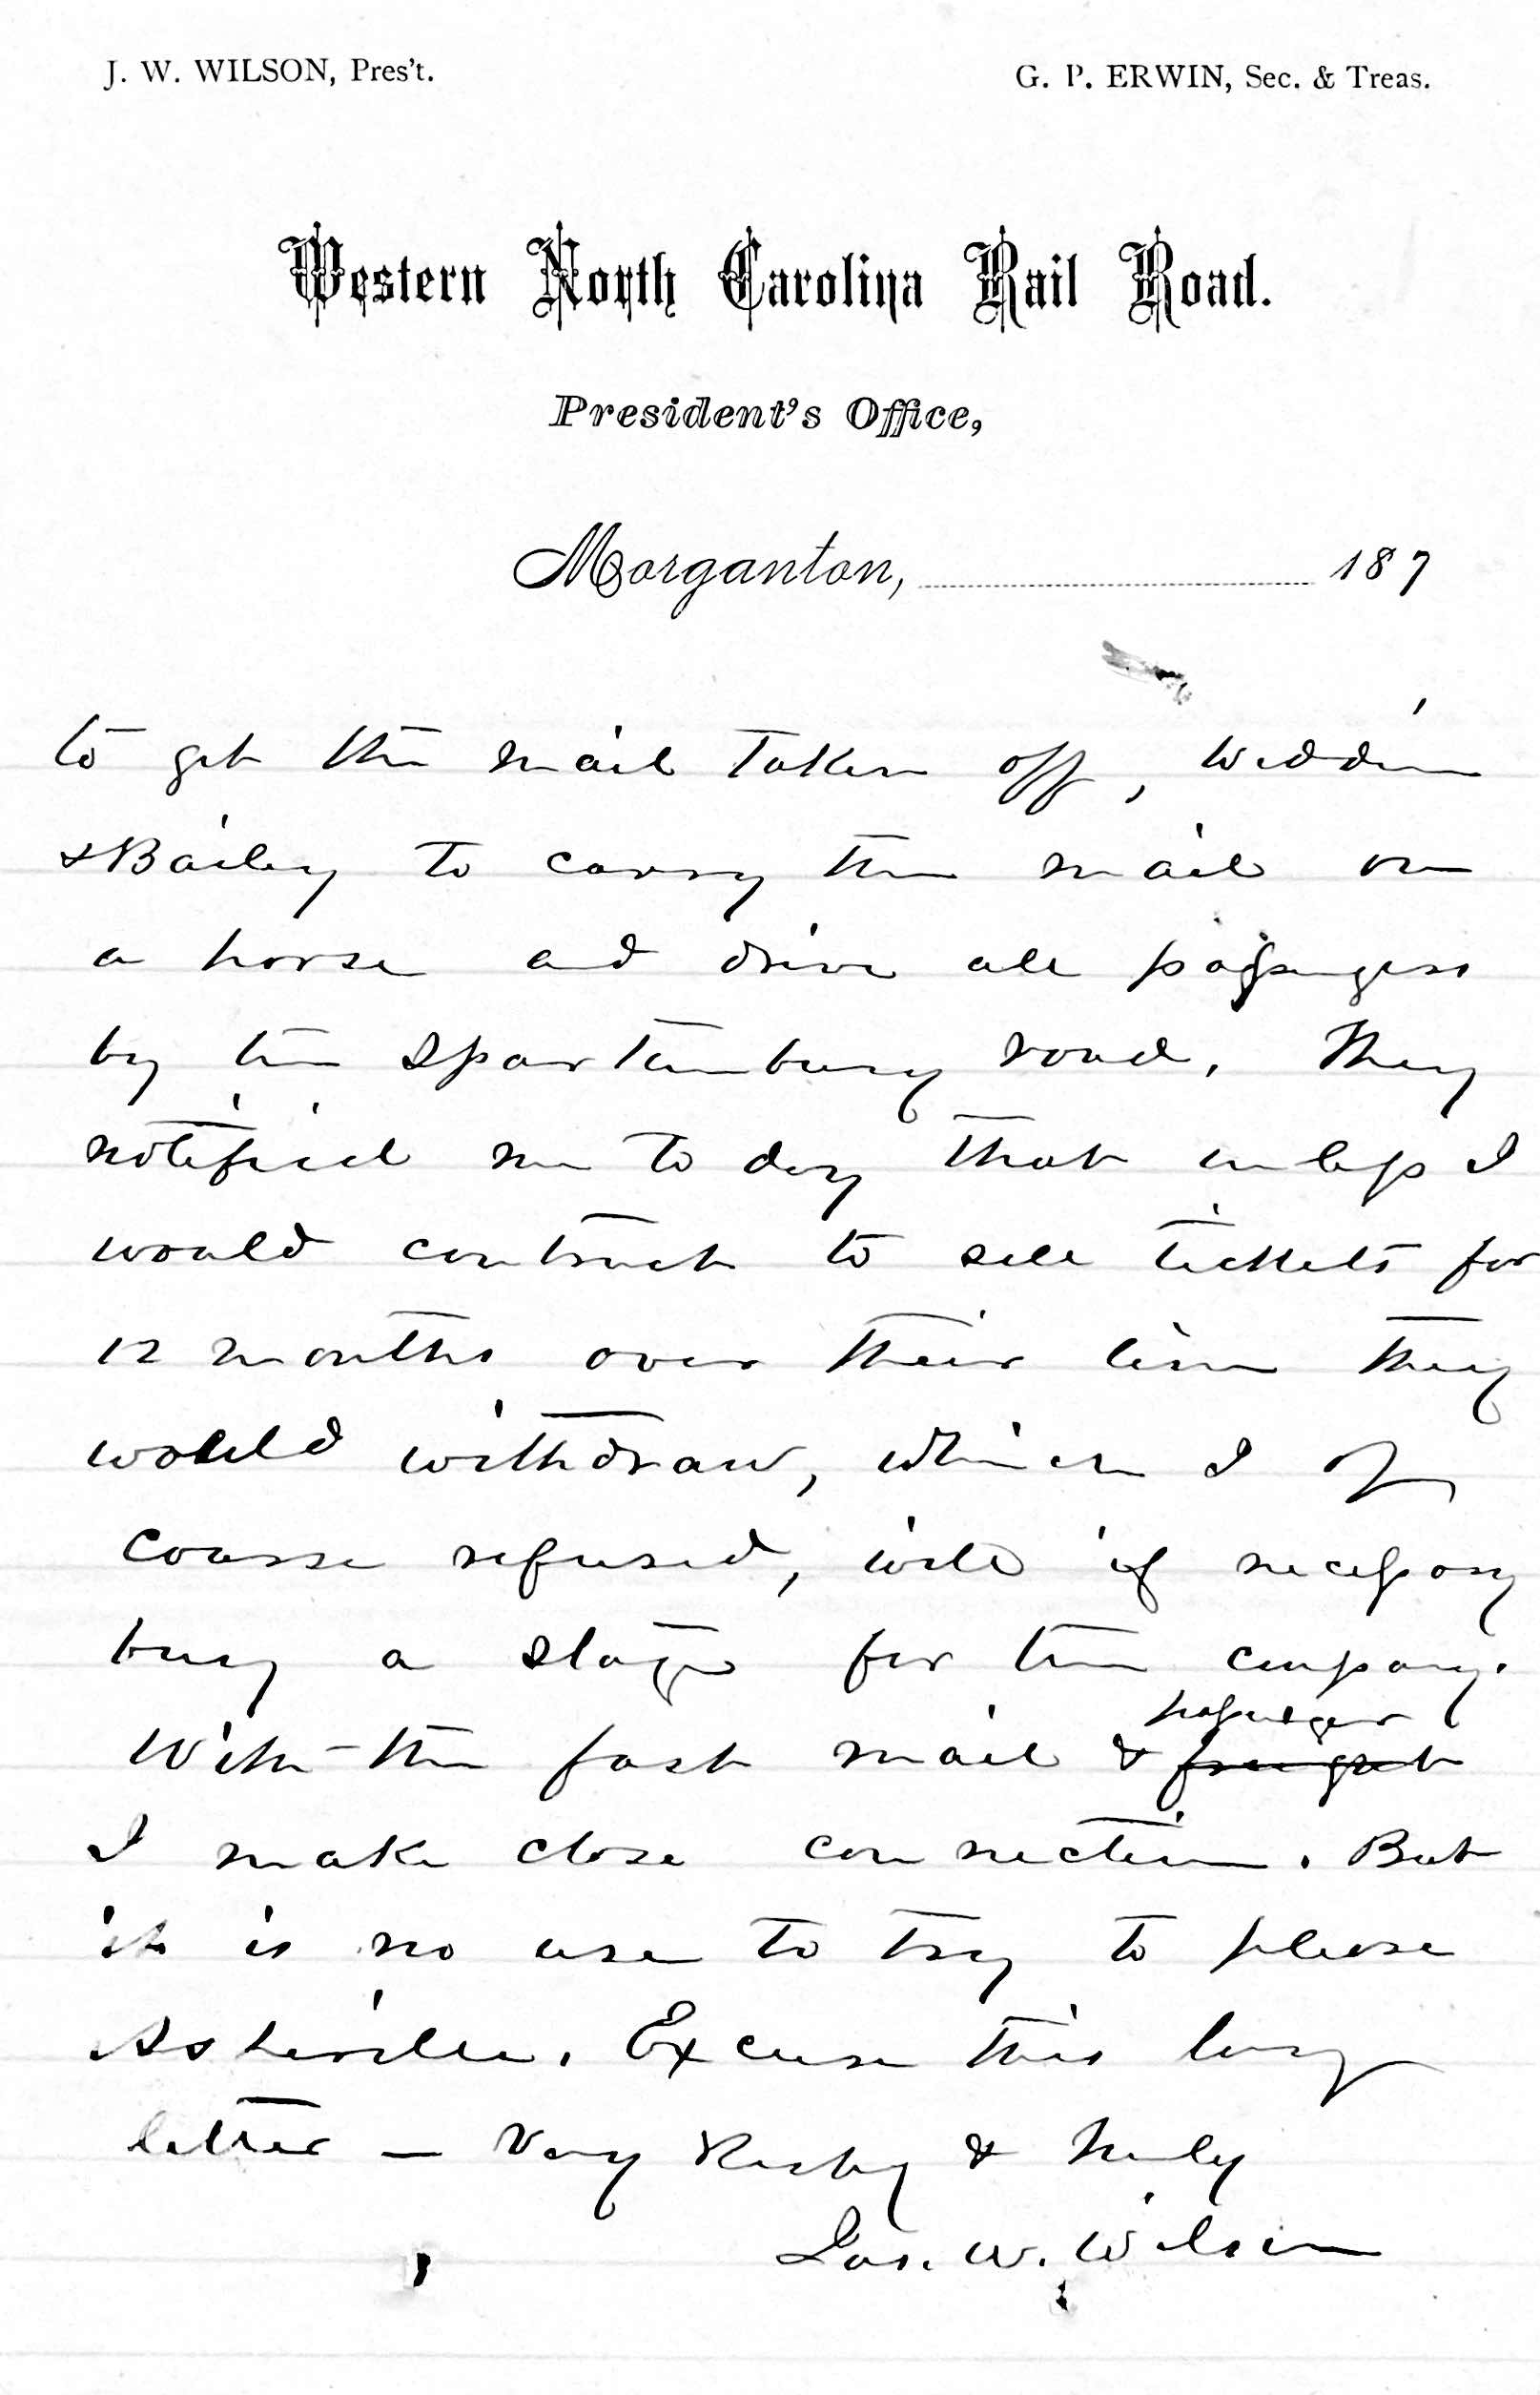 J. W. WILSON, Pres't.
G. P. ERWIN, Sec. & Treas.
Western North Carolina Rail Road.
President's Office,
Morganton, 187
to get the mail taken off,
& Bailey to carry the mail on
a horse and drive all passengers
by the Spartanburg road. They
notified me to day that unless I
would contract to sell tickets for
12 months over their line they
would withdraw, which I of
course refused, will if necessary
buy a stage for the company.
passenger
With the fast mail & freight
I make close connection. But
it is no use to try to please
Asheville. Excuse this long
letter — Very Resptly & truly
Jas. W. Wilson